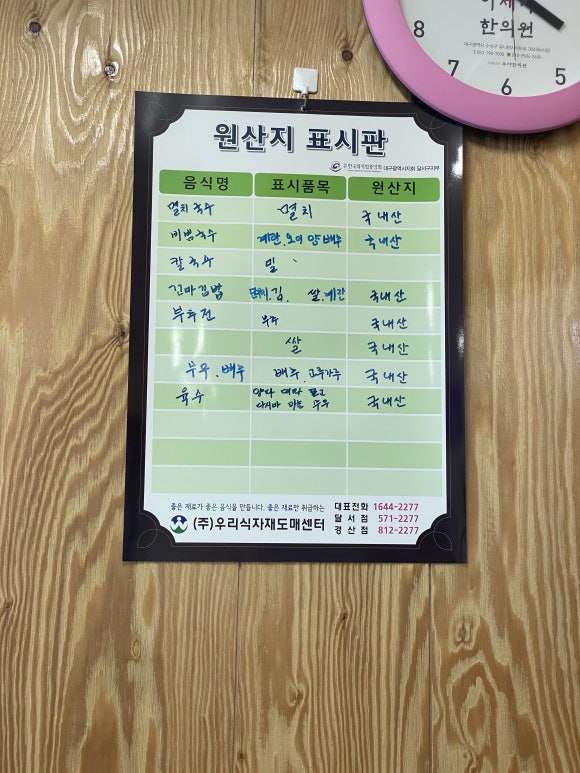 한의원
8 7 6 5
원산지 표시판
대구광역시지회 달서구지부
음식명 표시품목 원산지
멸치국수 멸치 국내산
비빔국수 계란.오이 양배추 국내산
칼국수 밀
꼬마김밥 단무지.김. 쌀.계란 국내산
부추전 부추 국내산
쌀 국내산
무우.배추 배추.고추가루 국내산
육수 양파 대파 표고 국내산
다시마 마늘 무우
좋은 재료가 좋은 음식을 만듭니다. 좋은 재료만 취급하는
(주)우리식자재도매센터
대표전화 1644-2277
달서점 571-2277
경산점 812-2277